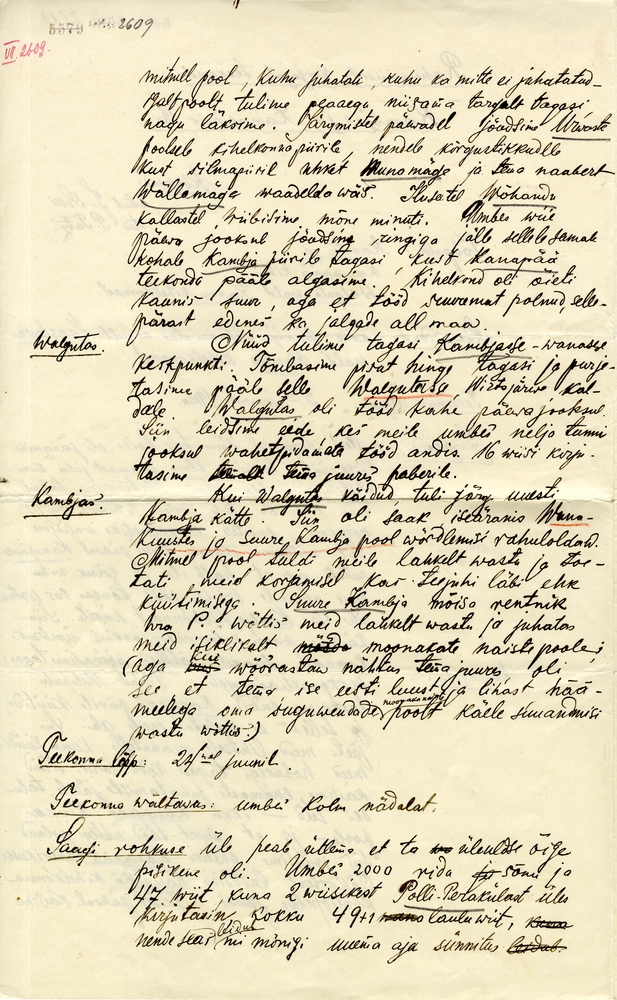 5579 2609
VII. 2609.
mitmel pool, kuhu juhatati, kuhu ka mitte ei juhatatud -
sealt poolt tulime peaaegu niisama targalt tagasi
nagu läksime. Järgmistel päewadel jõudsime Urwaste
poolsele kihelkonna piirile, nendele kõrgustikkudele
kust silmapiiril uhket Munamäge ja tema naabert
Wällamäge waadelda wõis. Ilusatel Wõhandu
kallastel wiibisime mõne minuti. Umbes wiie
päewa jooksul jõudsime ringiga jälle sellele samale
kohale Kambja piirile tagasi, kust Kanapää
teekonda pääle algasime. Kihelkond oli õieti
kaunis suur, aga et tööd suuremat polnud, selle-
pärast edenes ka jalgade all maa.
Walgutas.
Nüüd tulime tagasi Kambjasse - wanasse
keskpunkti. Tõmbasime pisut hinge tagasi ja purje-
tasime pääle selle Walgutasse, Wirtsjärwe kal-
dale. Walgutas oli tööd kahe päewa jooksul.
Siin leidsime eede kes meile umbes nelja tunni
jooksul wahetpidamata tööd andis. 16 wiisi kirju-
tasime temalt tema juures paberile.
Kambjas.
Kui Walgutas käidud, tuli järg uuesti
Kambja kätte. Siin oli saak iseäranis Wana-
Kuustes ja Suure Kambja pool wõrdlemisi rahuloldaw.
Mitmel pool tuldi meile lahkelt wastu ja toe-
tati meid korjamisel kas teejuhi läbi ehk
küütimisega. Suure Kambja mõisa rentnik
hra P. wõttis meid lahkelt wastu ja juhatas
meid isiklikult moonakate naiste poole;
(aga kui wõõrastaw nähtus tema juures oli
see et tema, ise eesti luust ja lihast hää-
meelega oma suguwendade moonakameeste poolt käele suuandmisi
wastu wõttis.)
Teekonna lõpp: 24mal juunil.
Teekonna wältawus: umbes kolm nädalat.
Saagi rohkuse üle peab ütlema et ta üleüldse õige
pisikene oli. Umbes 2000 rida sõnu ja
47 wiit, kuna 2 wiisikest Polli-Peräkülast üles
kirjutasin. Kokku 49+1 laulu wiit,
nende seas leidus nii mõnigi uuema aja sünnitus leidub.